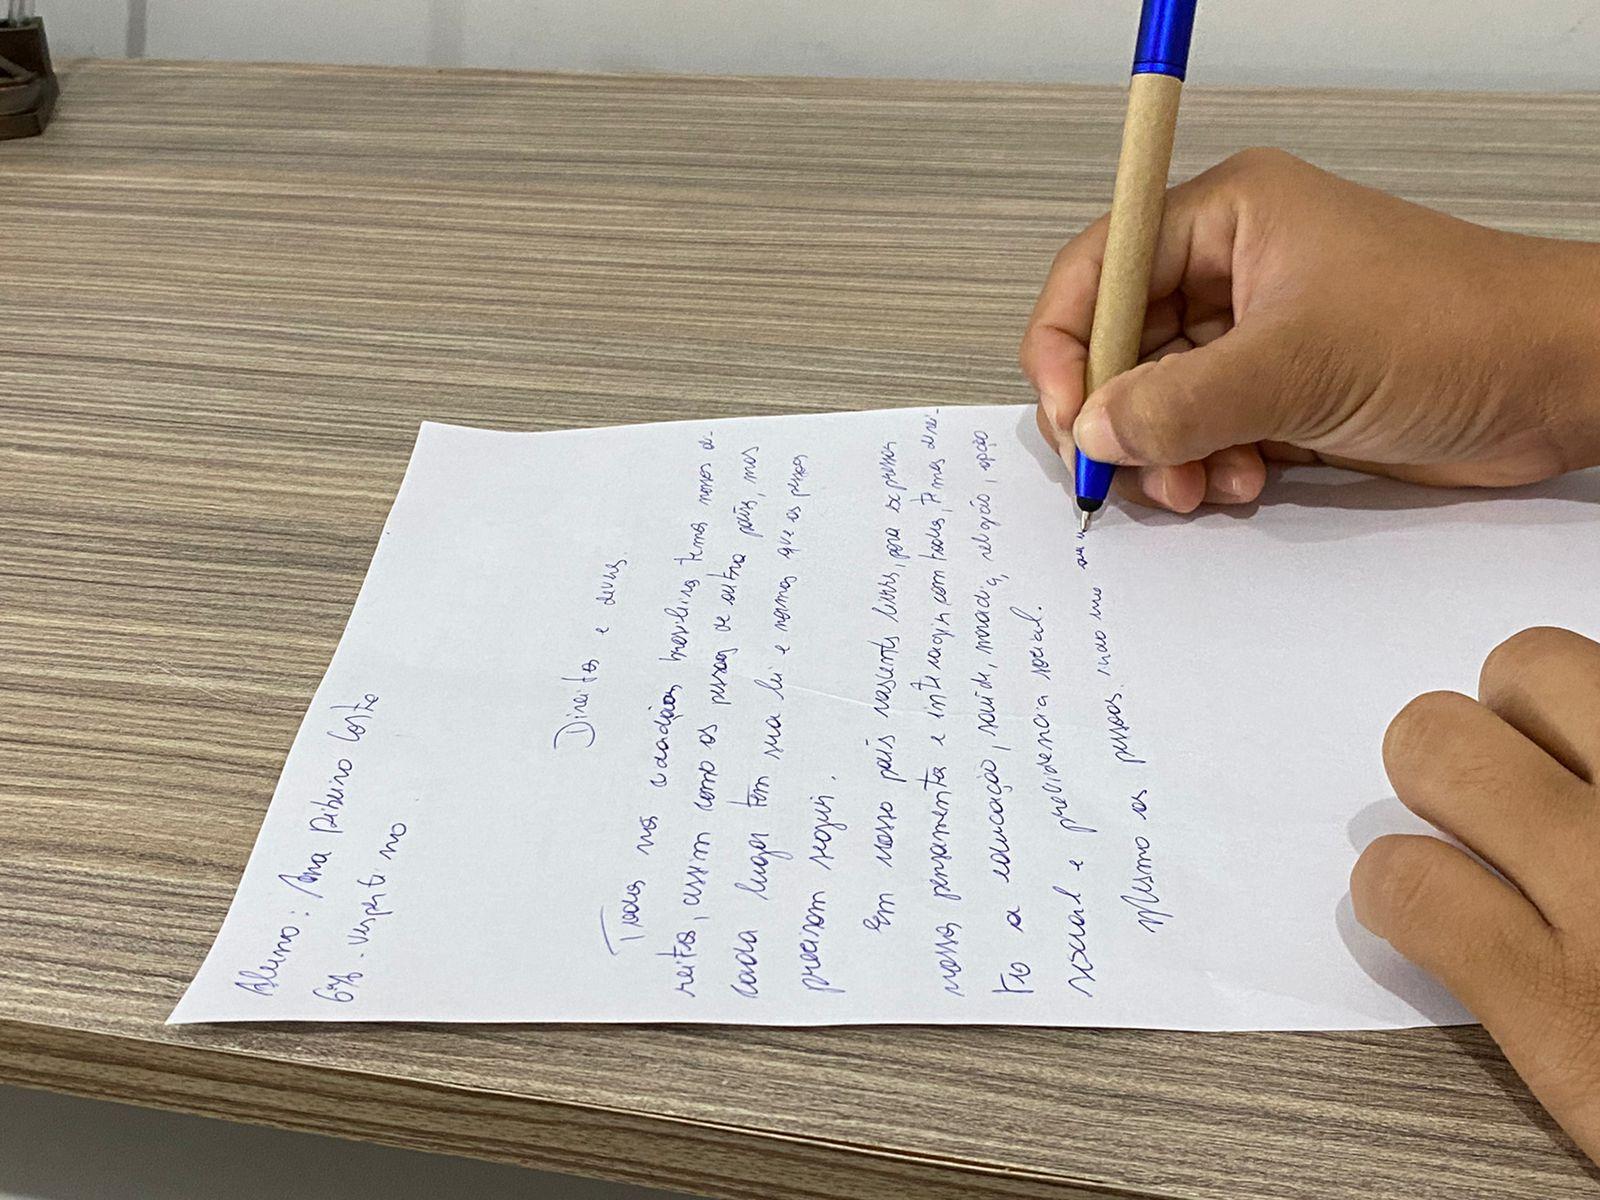 Aluno: Ana Ribeiro Costa
6º . vespertino
Direitos e deveres.
Todos nós cidadãos brasileiros temos nossos di-
reitos, assim como as pessoas de outros país, mas
cada lugar tem sua lei e normas que as pessoas
precisam seguir.
Em nosso país nascemos livres, para expressar
nossos pensamentos e interagir com todos, temos direi-
to a educação, saúde, moradia, religião, opção
sexual e previdencia social.
Mesmo as pessoas